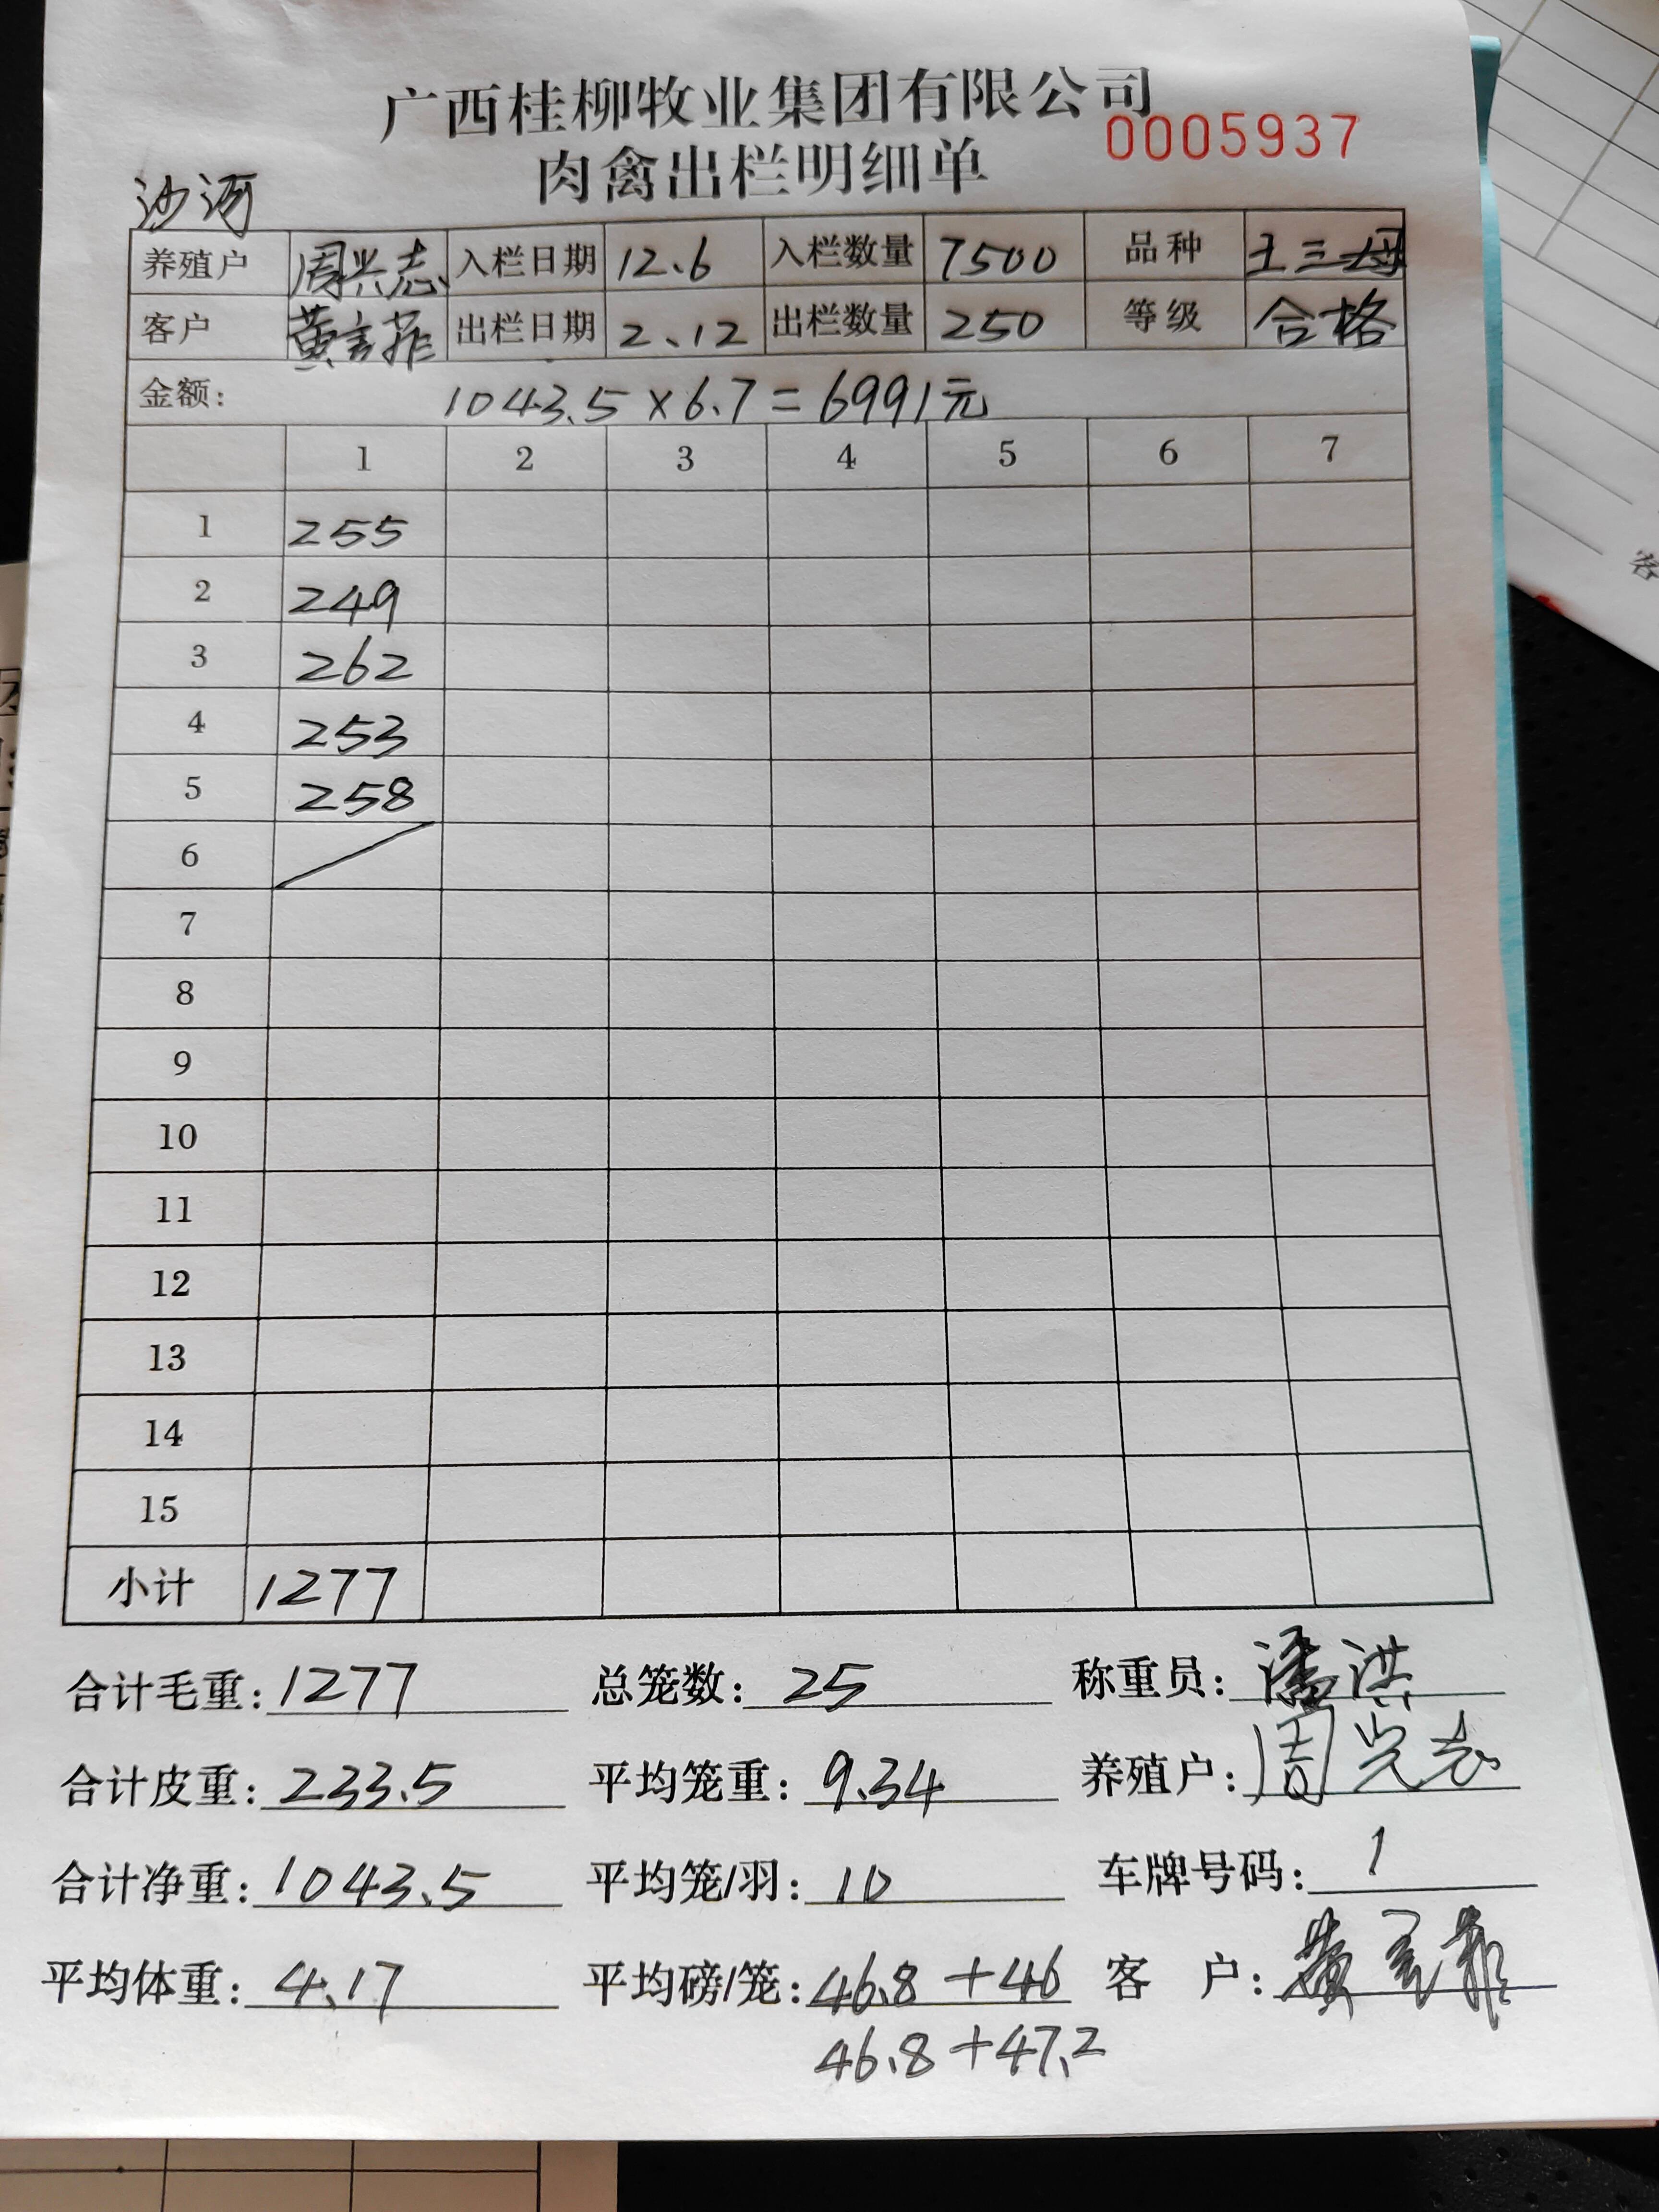 广西桂柳牧业集团有限公司
0005937
肉禽出栏明细单
沙河
养殖户 周兴志 入栏日期 12.6 入栏数量 7500 品种 土三母
客户 出栏日期 2.12 出栏数量 250 等级 合格
金额: 1043.5×6.7=6991元
1 2 3 4 5 6 7
1 255
2 249
3 262
4 253
5 258
6
7
8
9
10
11
12
13
14
15
小计 1277
合计毛重: 1277 总笼数: 25 称重员: 潘洪
合计皮重: 233.5 平均笼重: 9.34 养殖户: 周兴志
合计净重: 1043.5 平均笼/羽: 10 车牌号码: 1
平均体重: 4.17 平均磅/笼: 46.8+46 客户:
46.8+47.2
客